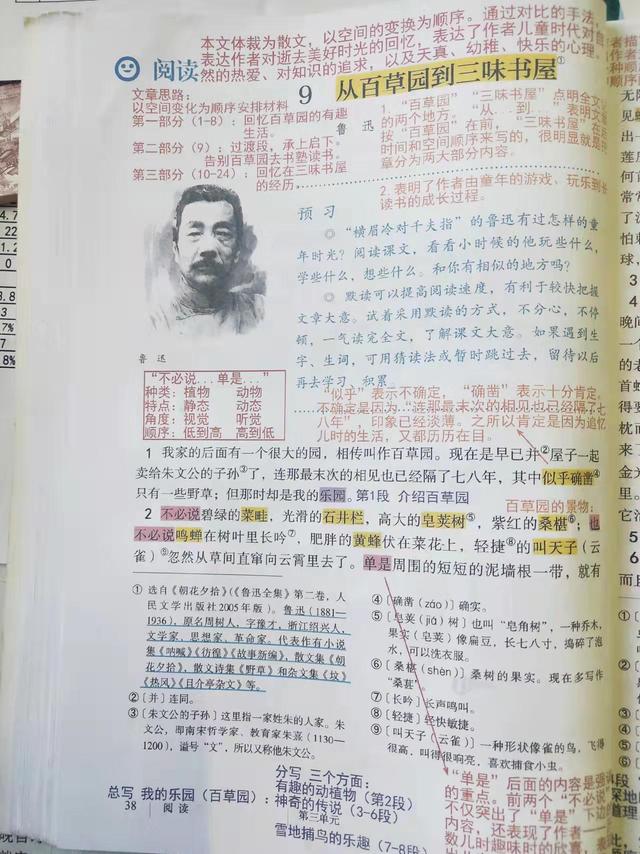 本文体裁为散文，以空间的变换为顺序。通过对比的手法，
表达作者对逝去美好时光的回忆，表达了作者儿童时代对自
然的热爱、对知识的追求，以及天真、幼稚、快乐的心理。
阅读
9 从百草园到三味书屋①
鲁迅
文章思路：
以空间变化为顺序安排材料
第一部分（1-8）：回忆百草园的有趣
生活。
第二部分（9）：过渡段，承上启下。
告别百草园去书塾读书。
第三部分（10-24）：回忆在三味书屋
的经历。
1. “百草园”“三味书屋”点明全文
的两个地方。“从...到...”表明文
按“百草园”在前，“三味书屋”在后
时间和空间顺序来写的，很明显就是
章分为两大部分内容。
2. 表明了作者由童年的游戏、玩乐到
读书的成长过程。
预习
◎ “横眉冷对千夫指”的鲁迅有过怎样的童
年时光？阅读课文，看看小时候的他玩些什么，
学些什么，想些什么。和你有相似的地方吗？
◎ 默读可以提高阅读速度，有利于较快把握
文章大意。试着采用默读的方式，不分心，不停
顿，一气读完全文，了解课文大意。如果遇到生
字、生词，可用猜读法或暂时跳过去，留待以后
再去学习、积累。
鲁迅
“不必说...单是...”
种类：植物 动物
特点：静态 动态
角度：视觉 听觉
顺序：低到高 高到低
“似乎”表示不确定，“确凿”表示十分肯定。
不确定是因为“连那最末次的相见也已经隔了七
八年”，印象已经淡薄。之所以肯定是因为追忆
儿时的生活，又都历历在目。
1 我家的后面有一个很大的园，相传叫作百草园。现在是早已并②屋子一起
卖给朱文公的子孙③了，连那最末次的相见也已经隔了七八年，其中似乎确凿④
只有一些野草；但那时却是我的乐园。第1段 介绍百草园
百草园的景物：
2 不必说碧绿的菜畦，光滑的石井栏，高大的皂荚树⑤，紫红的桑椹⑥；也
不必说鸣蝉在树叶里长吟⑦，肥胖的黄蜂伏在菜花上，轻捷⑧的叫天子（云
雀）⑨忽然从草间直窜向云霄里去了。单是周围的短短的泥墙根一带，就有
① 选自《朝花夕拾》（《鲁迅全集》第二卷，人
民文学出版社2005年版）。鲁迅（1881—
1936），原名周树人，字豫才，浙江绍兴人，
文学家、思想家、革命家。代表作有小说
集《呐喊》《彷徨》《故事新编》，散文集《朝
花夕拾》，散文诗集《野草》和杂文集《坟》
《热风》《且介亭杂文》等。
②〔并〕连同。
③〔朱文公的子孙〕这里指一家姓朱的人家。朱
文公，即南宋哲学家、教育家朱熹（1130—
1200），谥号“文”，所以又称他朱文公。
④〔确凿（záo）〕确实。
⑤〔皂荚（jiá）树〕也叫“皂角树”，一种乔木，
果实（皂荚）像扁豆，长七八寸，捣碎了泡
水，可以洗衣服。
⑥〔桑椹（shèn）〕桑树的果实。现在多写作
“桑葚”。
⑦〔长吟〕长声鸣叫。
⑧〔轻捷〕轻快敏捷。
⑨〔叫天子（云雀）〕一种形状像雀的鸟，飞得
很高，叫得很响亮，喜欢捕食小虫。
总写 我的乐园（百草园）：
分写 三个方面：
有趣的动植物（第2段）
神奇的传说（3-6段）
雪地捕鸟的乐趣（7-8段）
38 阅读
第三单元
“单是”后面的内容是强
的重点。前两个“不必说”
不仅突出了“单是”下边的
内容，还表现了作者
数儿时趣味时的欣喜